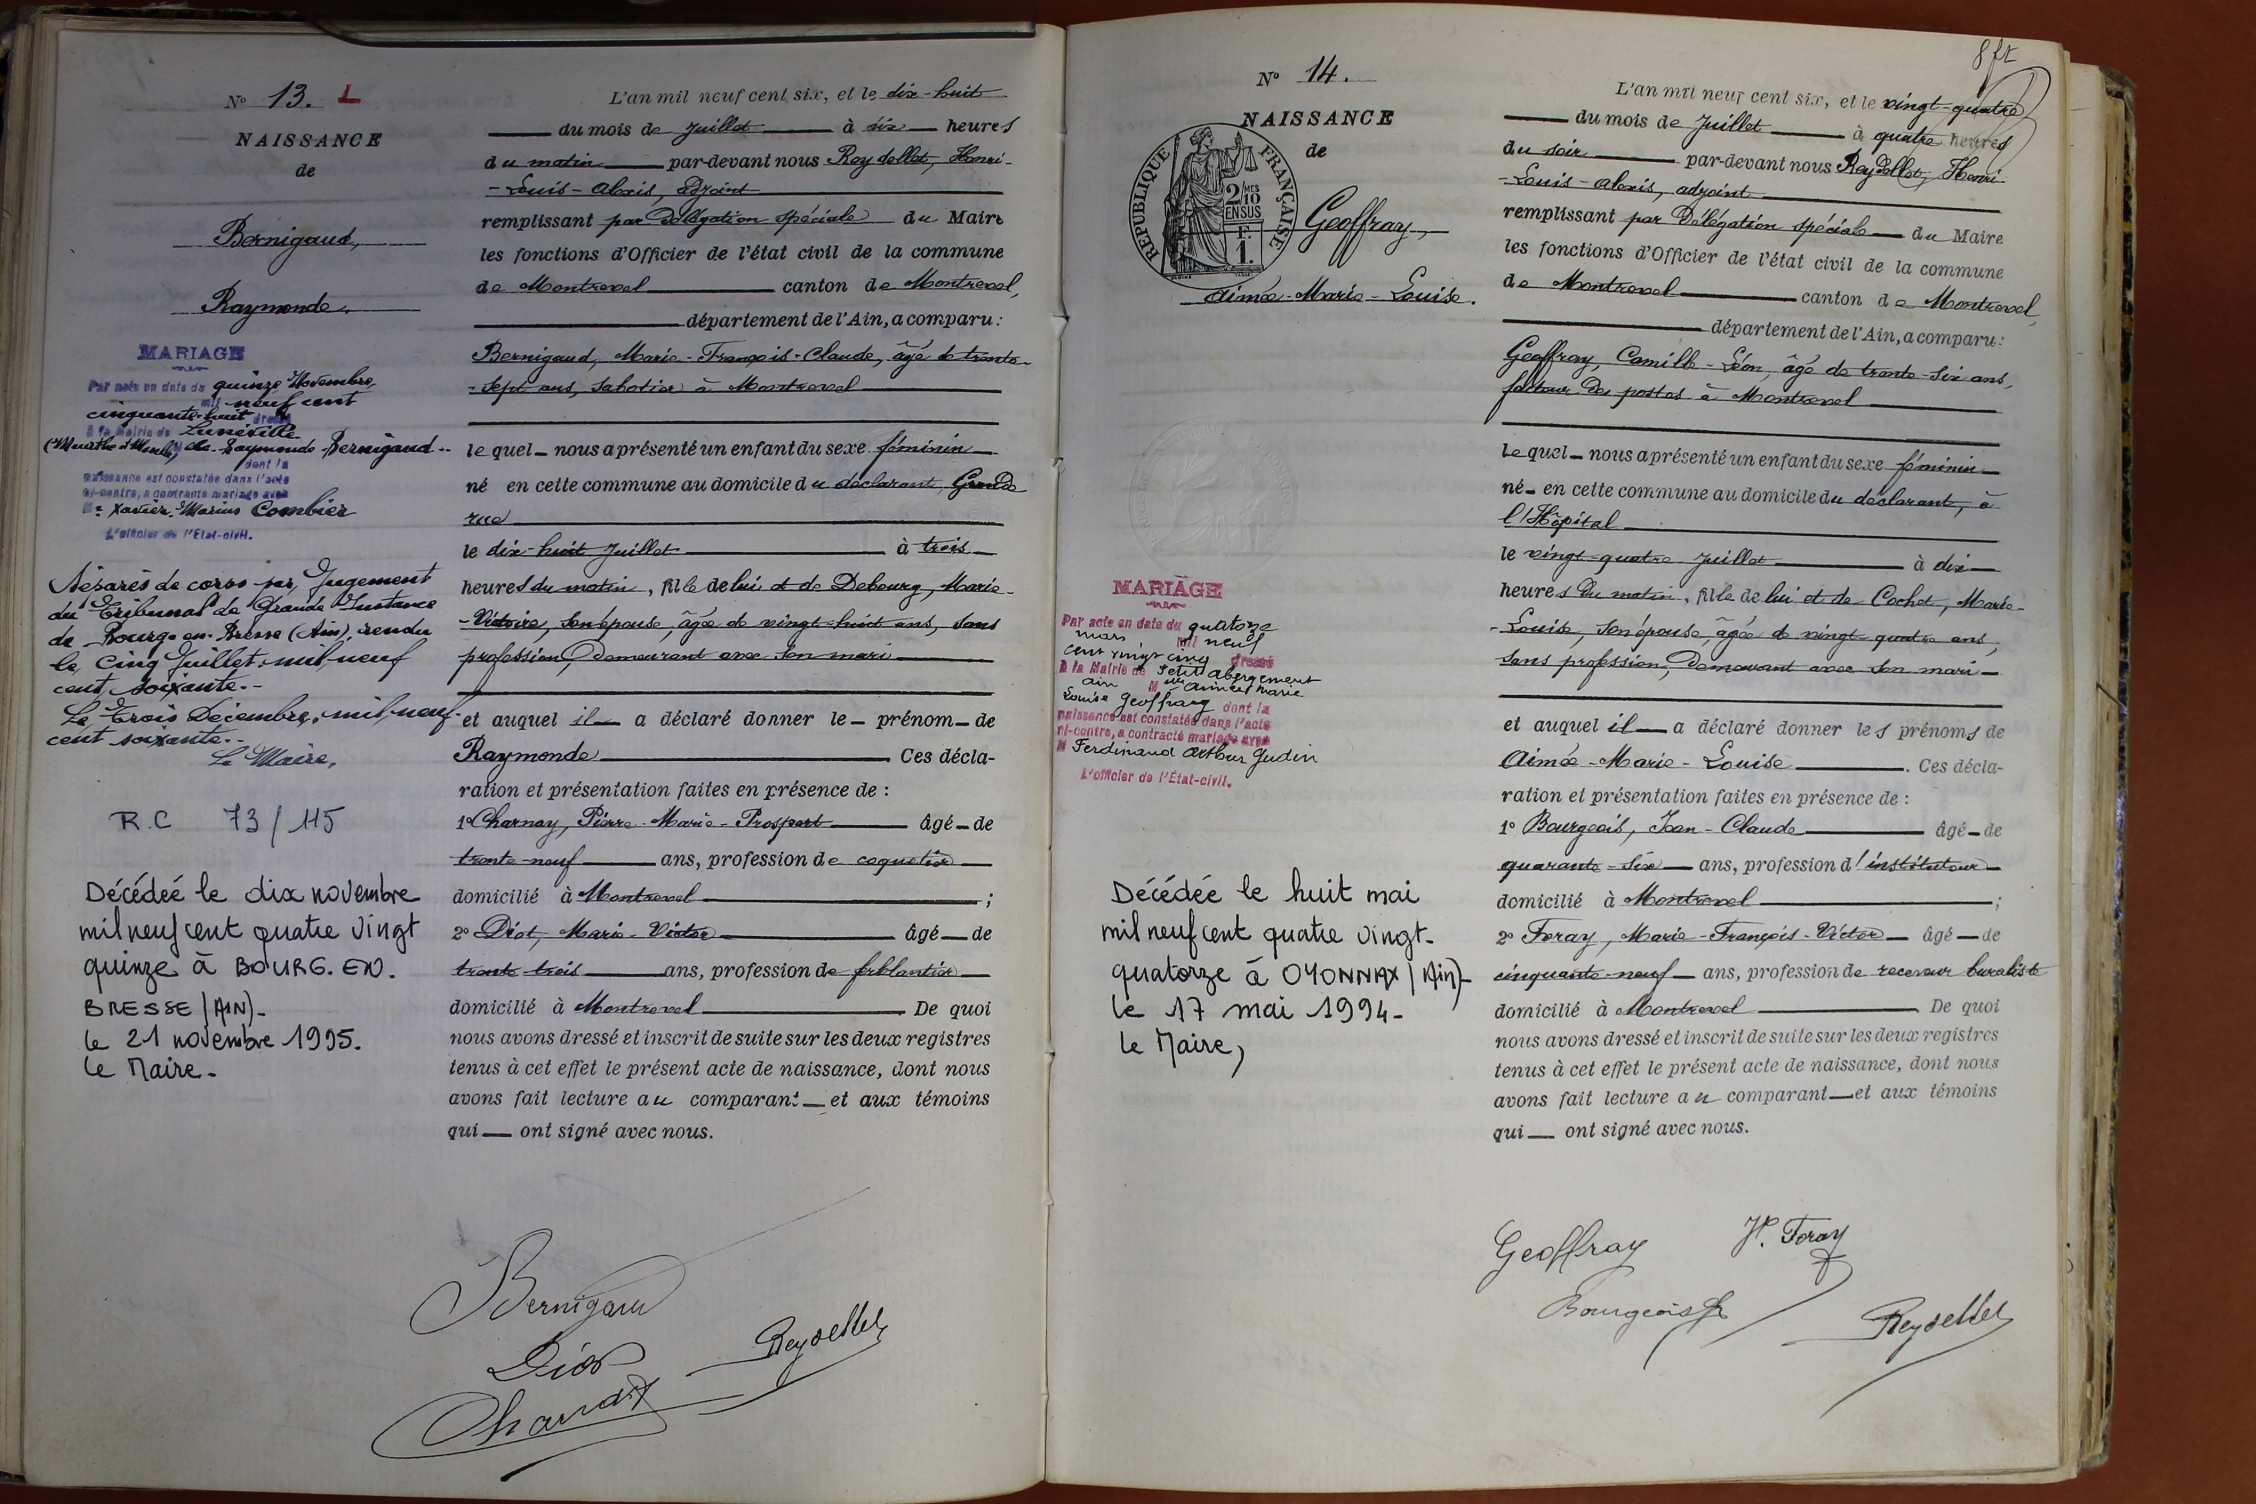 N° 13. L
NAISSANCE
de
Bernigaud,
Raymonde.
MARIAGE
Par acte en date du quinze Novembre,
mil neuf cent
cinquante-huit dressé
à la Mairie de Lunéville
(Meurthe et Moselle) Raymonde Bernigaud
dont la
naissance est constatée dans l'acte
ci-contre, a contracté mariage avec
Mr Xavier Marius Combier
L'officier de l'État-civil.
Séparés de corps par Jugement
du Tribunal de Grande Instance
de Bourg-en-Bresse (Ain), rendu
le, Cinq Juillet, mil neuf
cent, soixante.-
Le Trois Décembre, mil neuf
cent soixante.-
Le Maire,
R.C 73/115
Décédée le dix novembre
mil neuf cent quatre vingt
quinze à BOURG.EN.
BRESSE (AIN)-
le 21 novembre 1995.
le Maire-
L'an mil neuf cent six, et le dix-huit
du mois de Juillet à six heures
du matin par-devant nous Reydellet, Henri-
-Louis-Alexis, Adjoint
remplissant par Délégation spéciale du Maire
les fonctions d'Officier de l'état civil de la commune
de Montrevel canton de Montrevel,
département de l'Ain, a comparu :
Bernigaud, Marie-François-Claude, âgé de trente-
-sept ans, sabotier à Montrevel
le quel nous a présenté un enfant du sexe féminin
né en cette commune au domicile du déclarant, Grande
rue
le dix-huit Juillet à trois
heures du matin, fille de lui et de Debourg, Marie-
-Victoire, son épouse, âgée de vingt-huit ans, sans
profession, demeurant avec son mari
et auquel il a déclaré donner le prénom de
Raymonde Ces décla-
ration et présentation faites en présence de :
1° Charnay, Pierre-Marie-Prospert âgé de
trente-neuf ans, profession de coquetier
domicilié à Montrevel ;
2° Diot, Marie-Victor âgé de
trente-trois ans, profession de ferblantier
domicilié à Montrevel De quoi
nous avons dressé et inscrit de suite sur les deux registres
tenus à cet effet le présent acte de naissance, dont nous
avons fait lecture au comparant et aux témoins
qui ont signé avec nous.
Bernigaud
Diot
Reydellet
Charnay
8 ft
N° 14.
NAISSANCE
de
RÉPUBLIQUE FRANÇAISE
2/10 MES
EN SUS
F.
1.
Geoffray,
Aimée-Marie-Louise.
MARIAGE
Par acte en date du quatorze
mars mil neuf
cent vingt cinq dressé
à la Mairie de Petit Abergement
Ain Melle Aimée Marie
Louise Geoffray dont la
naissance est constatée dans l'acte
ci-contre, a contracté mariage avec
M Ferdinand Arthur Gudin
L'officier de l'État-civil.
Décédée le huit mai
mil neuf cent quatre vingt-
quatorze à OYONNAX (Ain)-
le 17 mai 1994-
le Maire,
L'an mil neuf cent six, et le vingt-quatre
du mois de Juillet à quatre heures
du soir par-devant nous Reydellet, Henri
-Louis-Alexis, adjoint
remplissant par Délégation spéciale du Maire
les fonctions d'Officier de l'état civil de la commune
de Montrevel canton de Montrevel,
département de l'Ain, a comparu :
Geoffray, Camille-Léon, âgé de trente-six ans,
facteur des postes à Montrevel
le quel nous a présenté un enfant du sexe féminin
né en cette commune au domicile du déclarant, à
l'Hôpital
le vingt-quatre Juillet à dix
heures du matin, fille de lui et de Cochet, Marie-
-Louise, son épouse, âgée de vingt-quatre ans,
sans profession, demeurant avec son mari
et auquel il a déclaré donner les prénoms de
Aimée-Marie-Louise. Ces décla-
ration et présentation faites en présence de :
1° Bourgeois, Jean-Claude âgé de
quarante-six ans, profession d'instituteur
domicilié à Montrevel ;
2° Feray, Marie-François-Victor âgé de
cinquante-neuf ans, profession de receveur buraliste
domicilié à Montrevel De quoi
nous avons dressé et inscrit de suite sur les deux registres
tenus à cet effet le présent acte de naissance, dont nous
avons fait lecture au comparant et aux témoins
qui ont signé avec nous.
Geoffray
Feray
Bourgeois
Reydellet